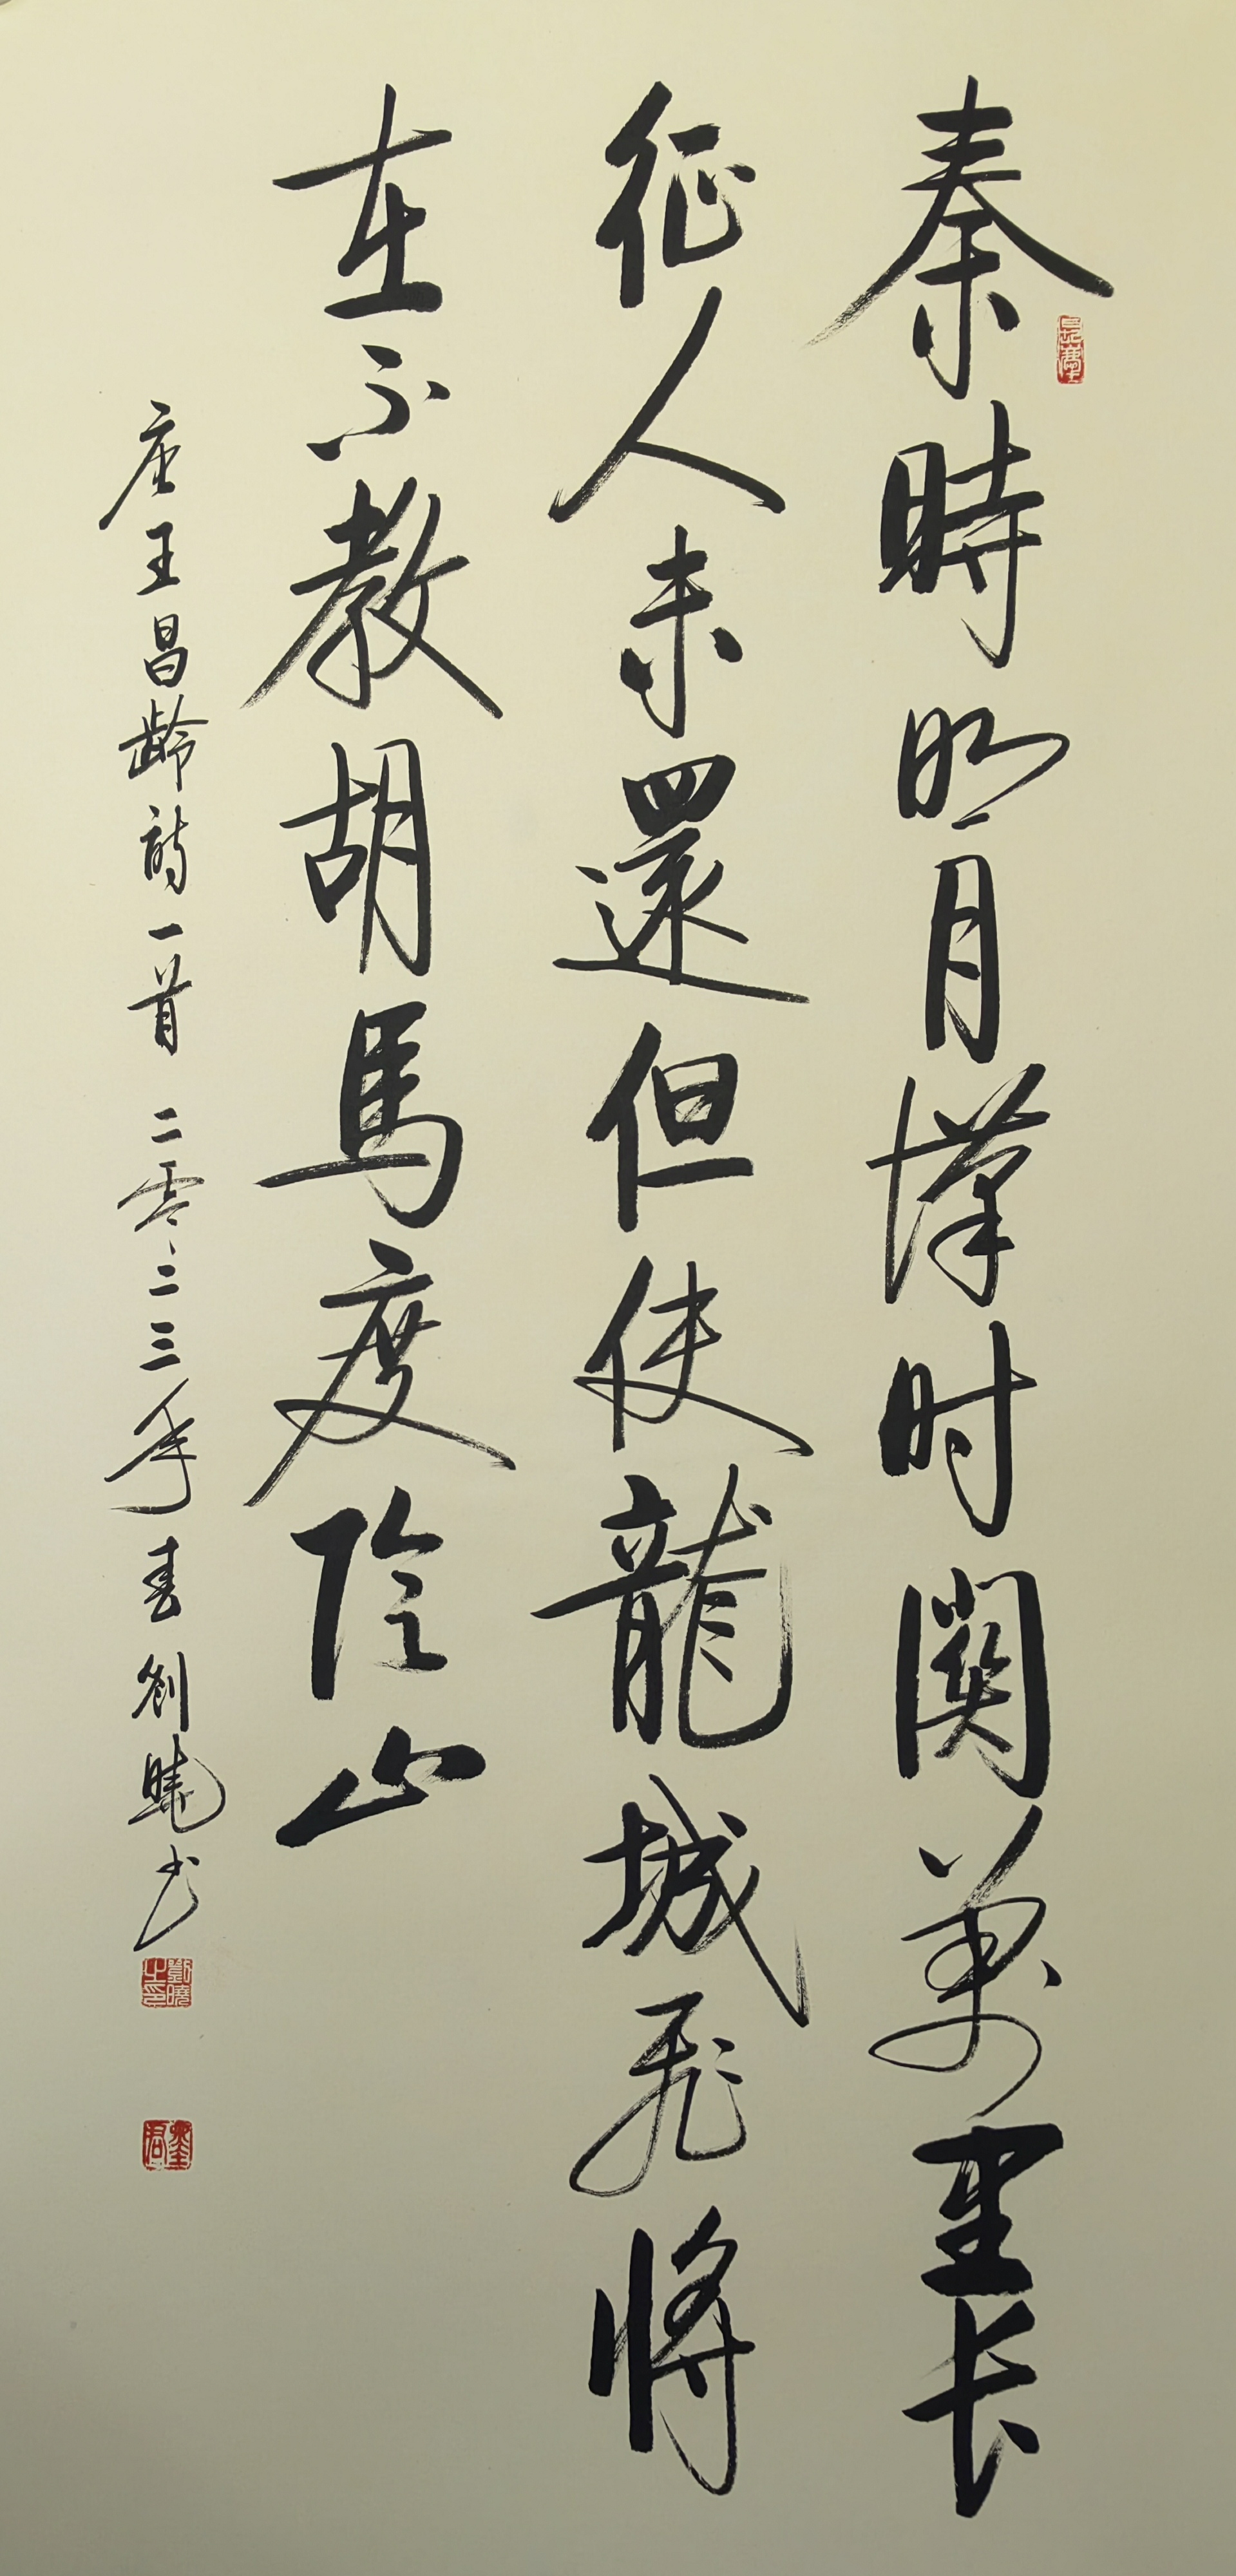 秦時明月漢时関萬里长
征人未還但使龍城飛將
在不教胡馬度陰山
唐王昌齡詩一首 二零二三年春 劉曉书
劉曉之印
墨君